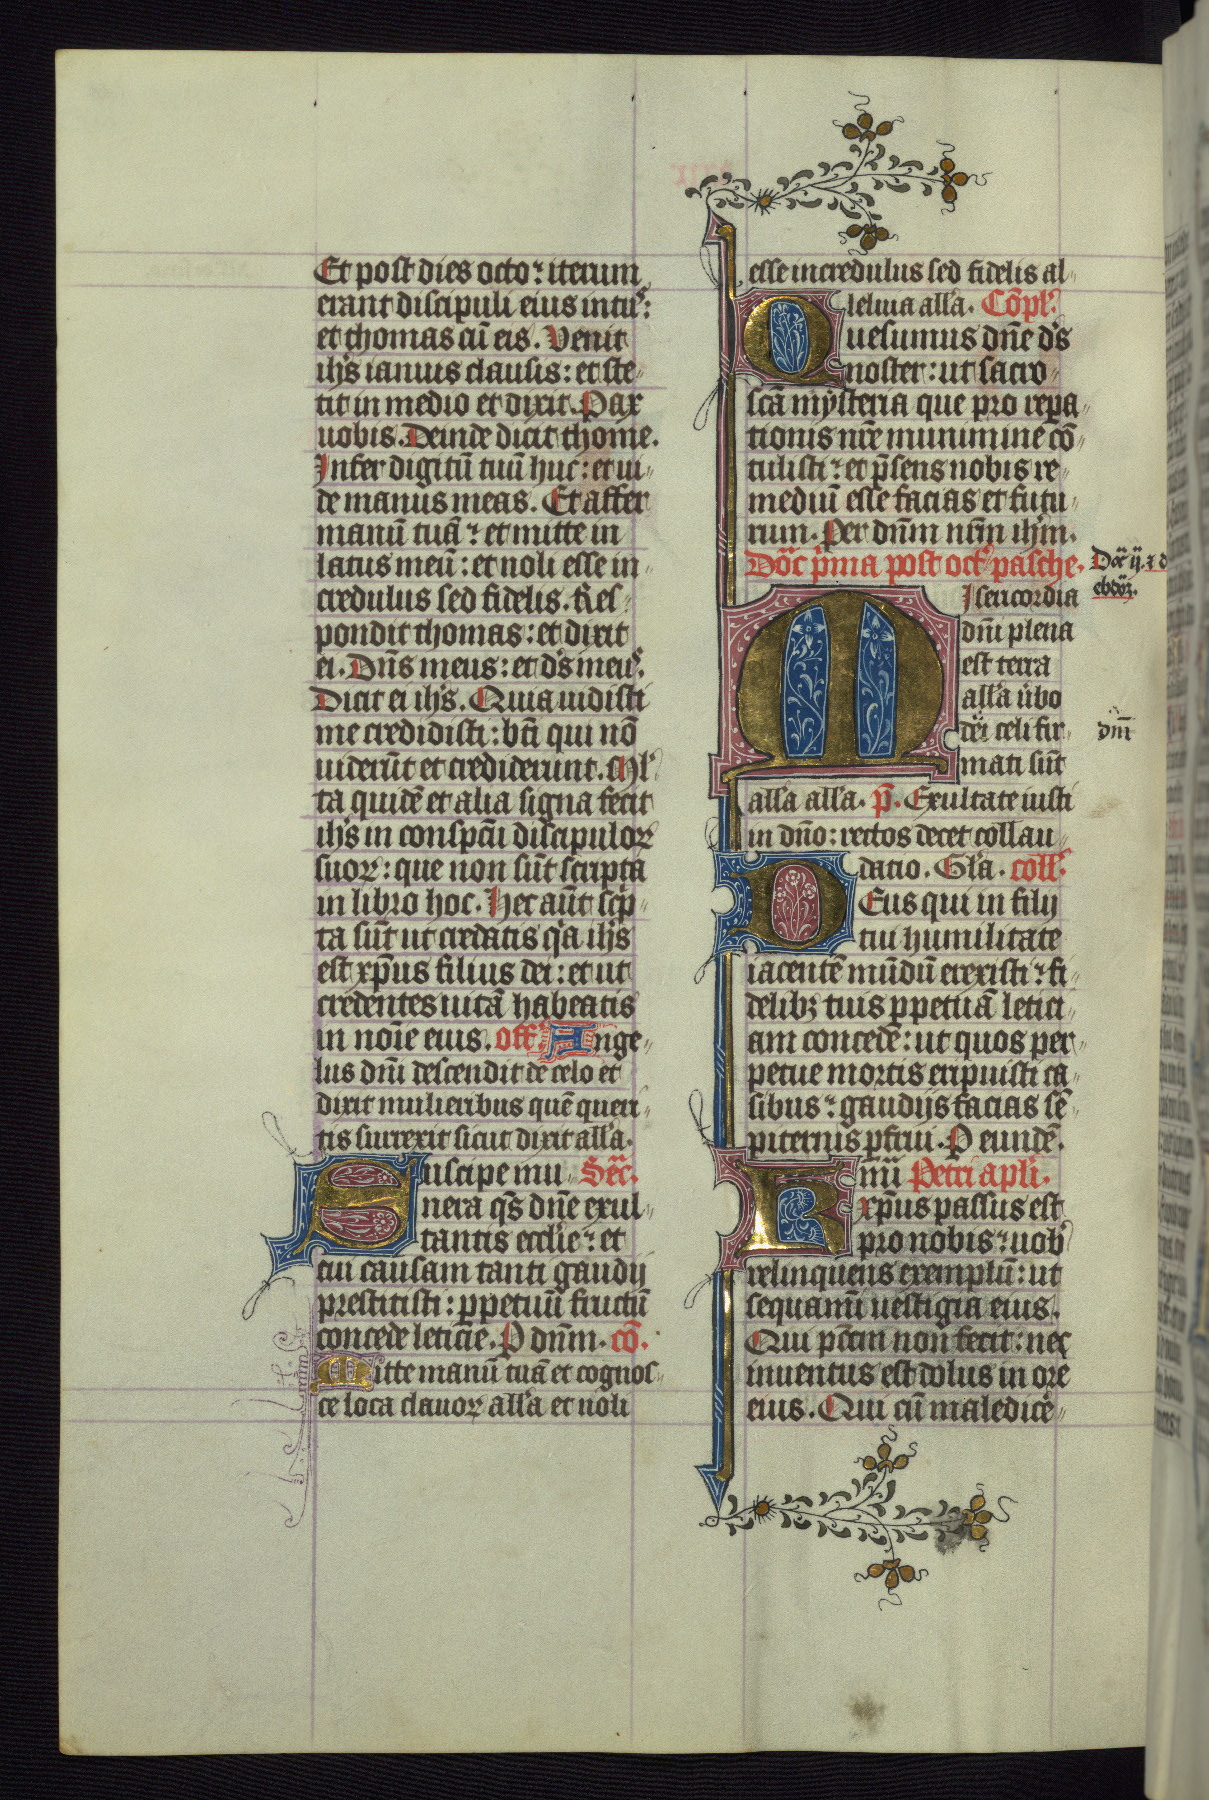 Et post dies octo : iterum
erant discipuli eius intus :
et thomas cū eis . Venit
ihs ianuis clausis : et ste-
tit in medio et dixit . Pax
uobis . Deinde dicit thome .
Infer digitū tuū huc : et ui-
de manus meas . Et affer
manū tuā : et mitte in
latus meū : et noli esse in-
credulus sed fidelis . Res-
pondit thomas : et dixit
ei . Dns meus : et ds meus .
Dicit ei ihs . Quia uidisti
me credidisti : bti qui nō
uiderūt et crediderunt . Mľ
ta quidē et alia signa fecit
ihs in conspcū discipuloꝝ
suoꝝ : que non sūt scripta
in libro hoc . Hec aūt scͥp-
ta sūt ut credatis qͥa ihs
est xp̄us filius dei : et ut
credentes uitā habeatis
in noīe eius . off Ange-
lus dnī descendit de celo et
dixit mulieribus quē queri-
tis surrexit sicut dixit all'a .
Suscipe mu- Secͬ .
nera qs dnē exul-
tantis eccl'ie : et
cui causam tanti gaudij
prestitisti : ꝑpetuū fructū
concede leticie . P dnm̄ . cō .
Mitte manū tuā et cognos-
ce loca clauoꝝ all'a et noli
esse incredulus sed fidelis al-
leluia all'a . Cōpl'
Quesumus dnē ds
noster : ut sacro
scā mysteria que pro repa-
tionis nr̄e munimine cō-
tulisti : et p̄sens nobis re-
mediū esse facias et futu-
rum . Per dnm̄ nrm̄ ihm .
Doͣc pͥma post octͣ pasche .
Misericordia
dnī plena
est terra
all'a ūbo
dei celi fir-
mati sūt
all'a all'a . p̄ . Exultate iusti
in dnō : rectos decet collau-
datio . Gl'a . coll'
Deus qui in filij
tui humilitate
iacentē mūdū erexisti : fi-
delibꝫ tuis ꝑpetuā letici-
am concede : ut quos per-
petue mortis eripuisti ca-
sibus : gaudijs facias sē-
piternis ꝑfrui . P eundē .
Kmi Petri apl'i .
Xp̄us passus est
pro nobis : uobˀ
relinquens exemplū : ut
sequamī uestigia eius .
Qui pctm̄ non fecit : nec
inuentus est dolus in ore
eius . Qui cū maledice-
dnī